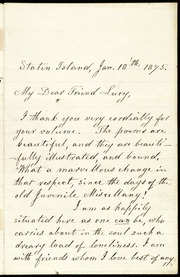 Staten Island, Jan. 18th, 1875.
My Dear Friend Lucy,
I thank you very cordially for
your volume. The poems are
beautiful, and they are beauti-
fully illustrated, and bound.
What a marvellous change in
that respect, since the days of the
old Juvenile Miscellany!
I am as happily
situated here as one can be, who
carries about in the soul such a
dreary load of loneliness. I am
with friends whom I love best of any